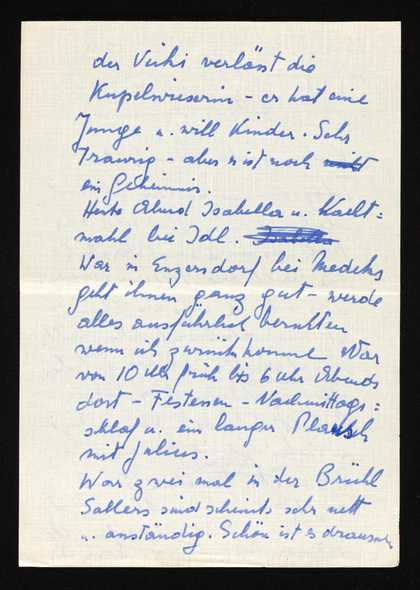 der Vicki verlässt die
Kupelwieserin - er hat eine
Junge u. will Kinder. Sehr
Traurig - aber es ist noch
ein Geheimnis.
Heute Abend Isabella u. Nacht=
mahl bei Idl.
War in Enzersdorf bei Medeks
geht ihnen ganz gut - werde
alles ausführlich berichten
wenn ich zurückkomme War
von 10 Uhr früh bis 6 Uhr Abends
dort - Festessen - Nachmittags=
schlaf u. ein langer Plausch
mit Julius.
War zwei mal in der Brühl
Sallers sind scheints sehr nett
u. anständig. Schön ist es draussen